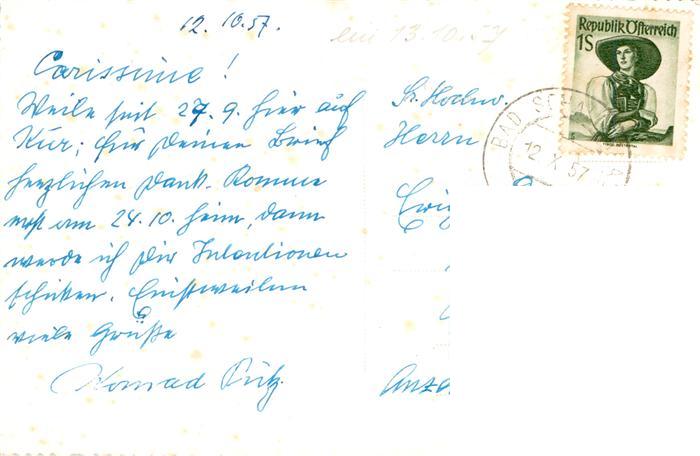 12.10.57.
ein 13.10.57
Carissime!
Weile seit 27.9. hier auf
Kur; für Deinen Brief
herzlichen Dank. Komme
erst am 24.10. heim, dann
werde ich Dir Intentionen
schicken. Einstweilen
viele Grüße
Konrad
Sr. Hochw.
Herrn
Republik Österreich
1S
BAD SCHA
12.X.57